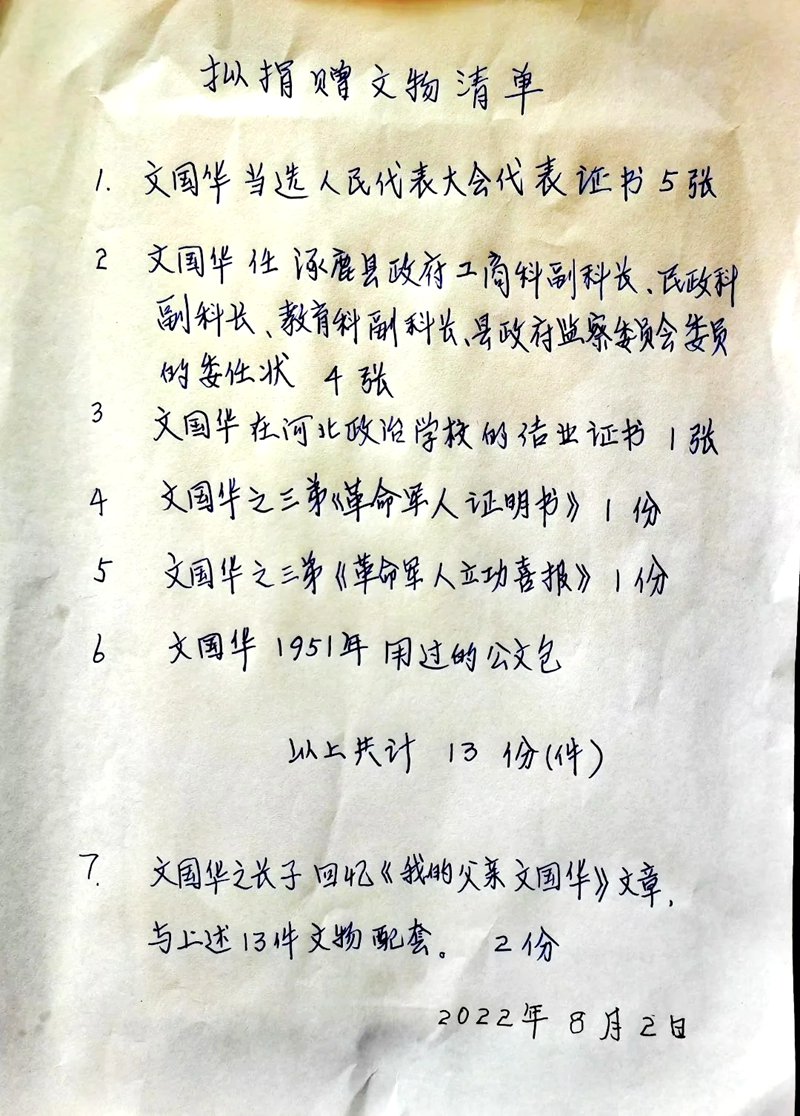 拟捐赠文物清单
1. 文国华当选人民代表大会代表证书5张
2 文国华任涿鹿县政府工商科副科长、民政科
副科长、教育科副科长、县政府监察委员会委员
的委任状 4张
3 文国华在河北政治学校的结业证书 1张
4 文国华之三弟《革命军人证明书》1份
5 文国华之三弟《革命军人立功喜报》1份
6 文国华1951年用过的公文包
以上共计 13 份(件)
7. 文国华之长子回忆《我的父亲文国华》文章,
与上述13件文物配套。 2份
2022年8月2日